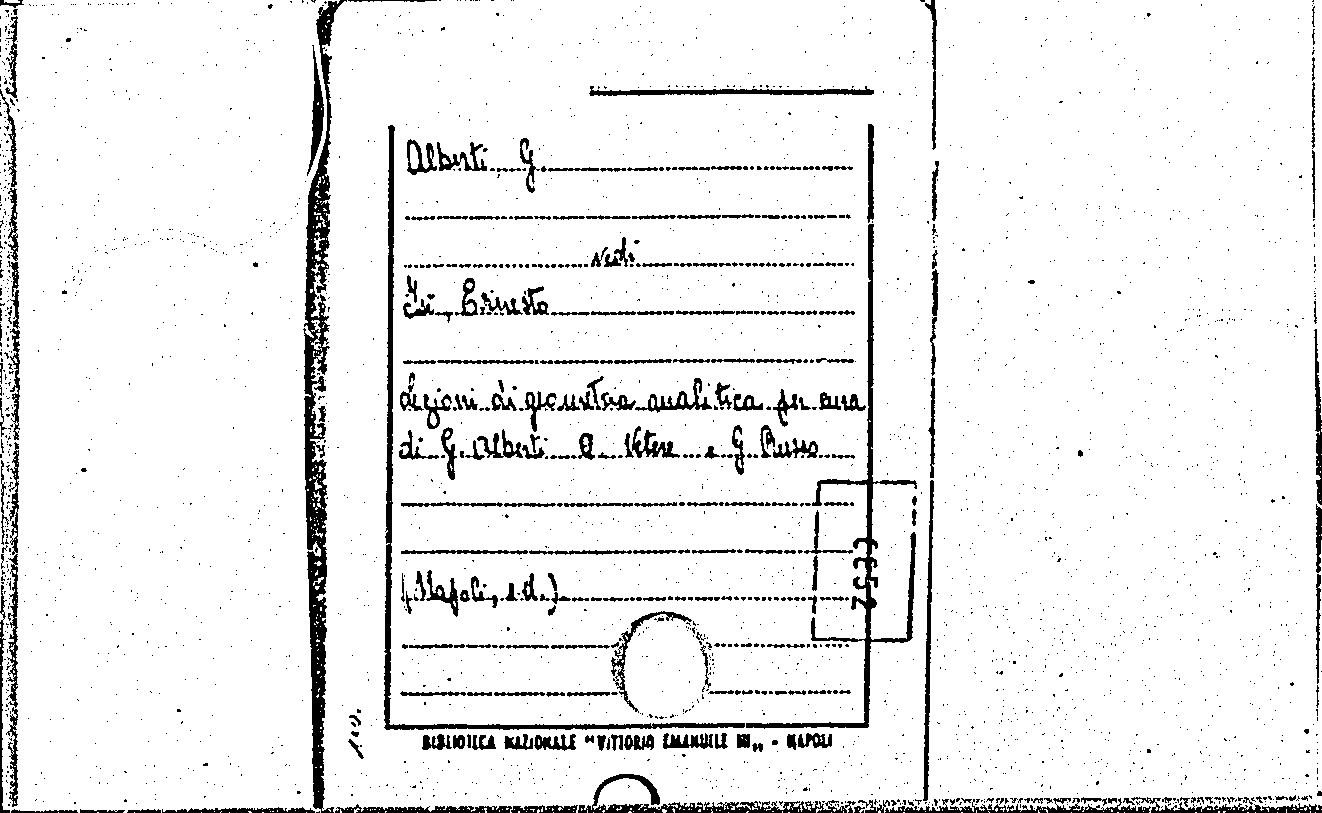 Alberti G.
vedi
Isè, Ernesto
Lezioni di geometria analitica per cura
di G. Alberti A. Vetere e G. Russo
(Napoli, s.d.).
BIBLIOTECA NAZIONALE "VITTORIO EMANUELE III„ - NAPOLI